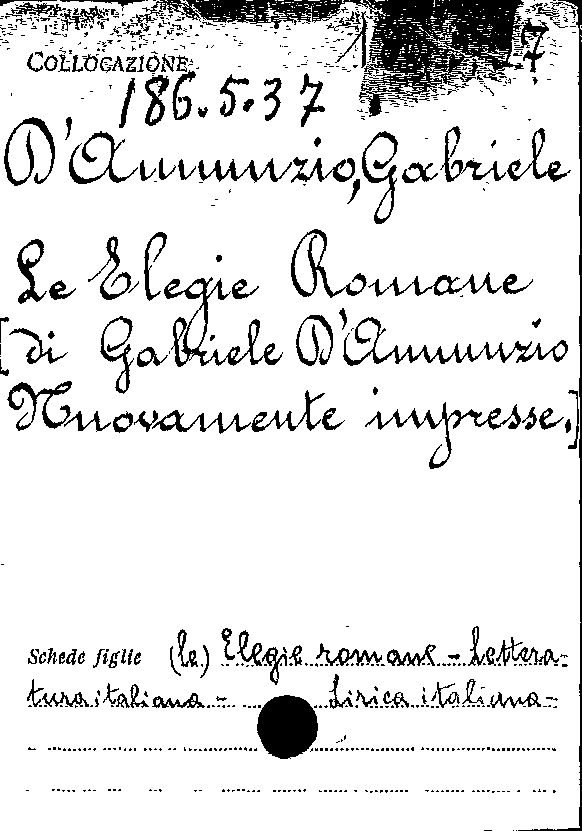 COLLOCAZIONE
186.5.37
D'Annunzio, Gabriele
Le Elegie Romane
[di Gabriele D'Annunzio
Nuovamente impresse.]
Schede figlie (le) Elegie romane - Lettera-
tura italiana - Lirica italiana -